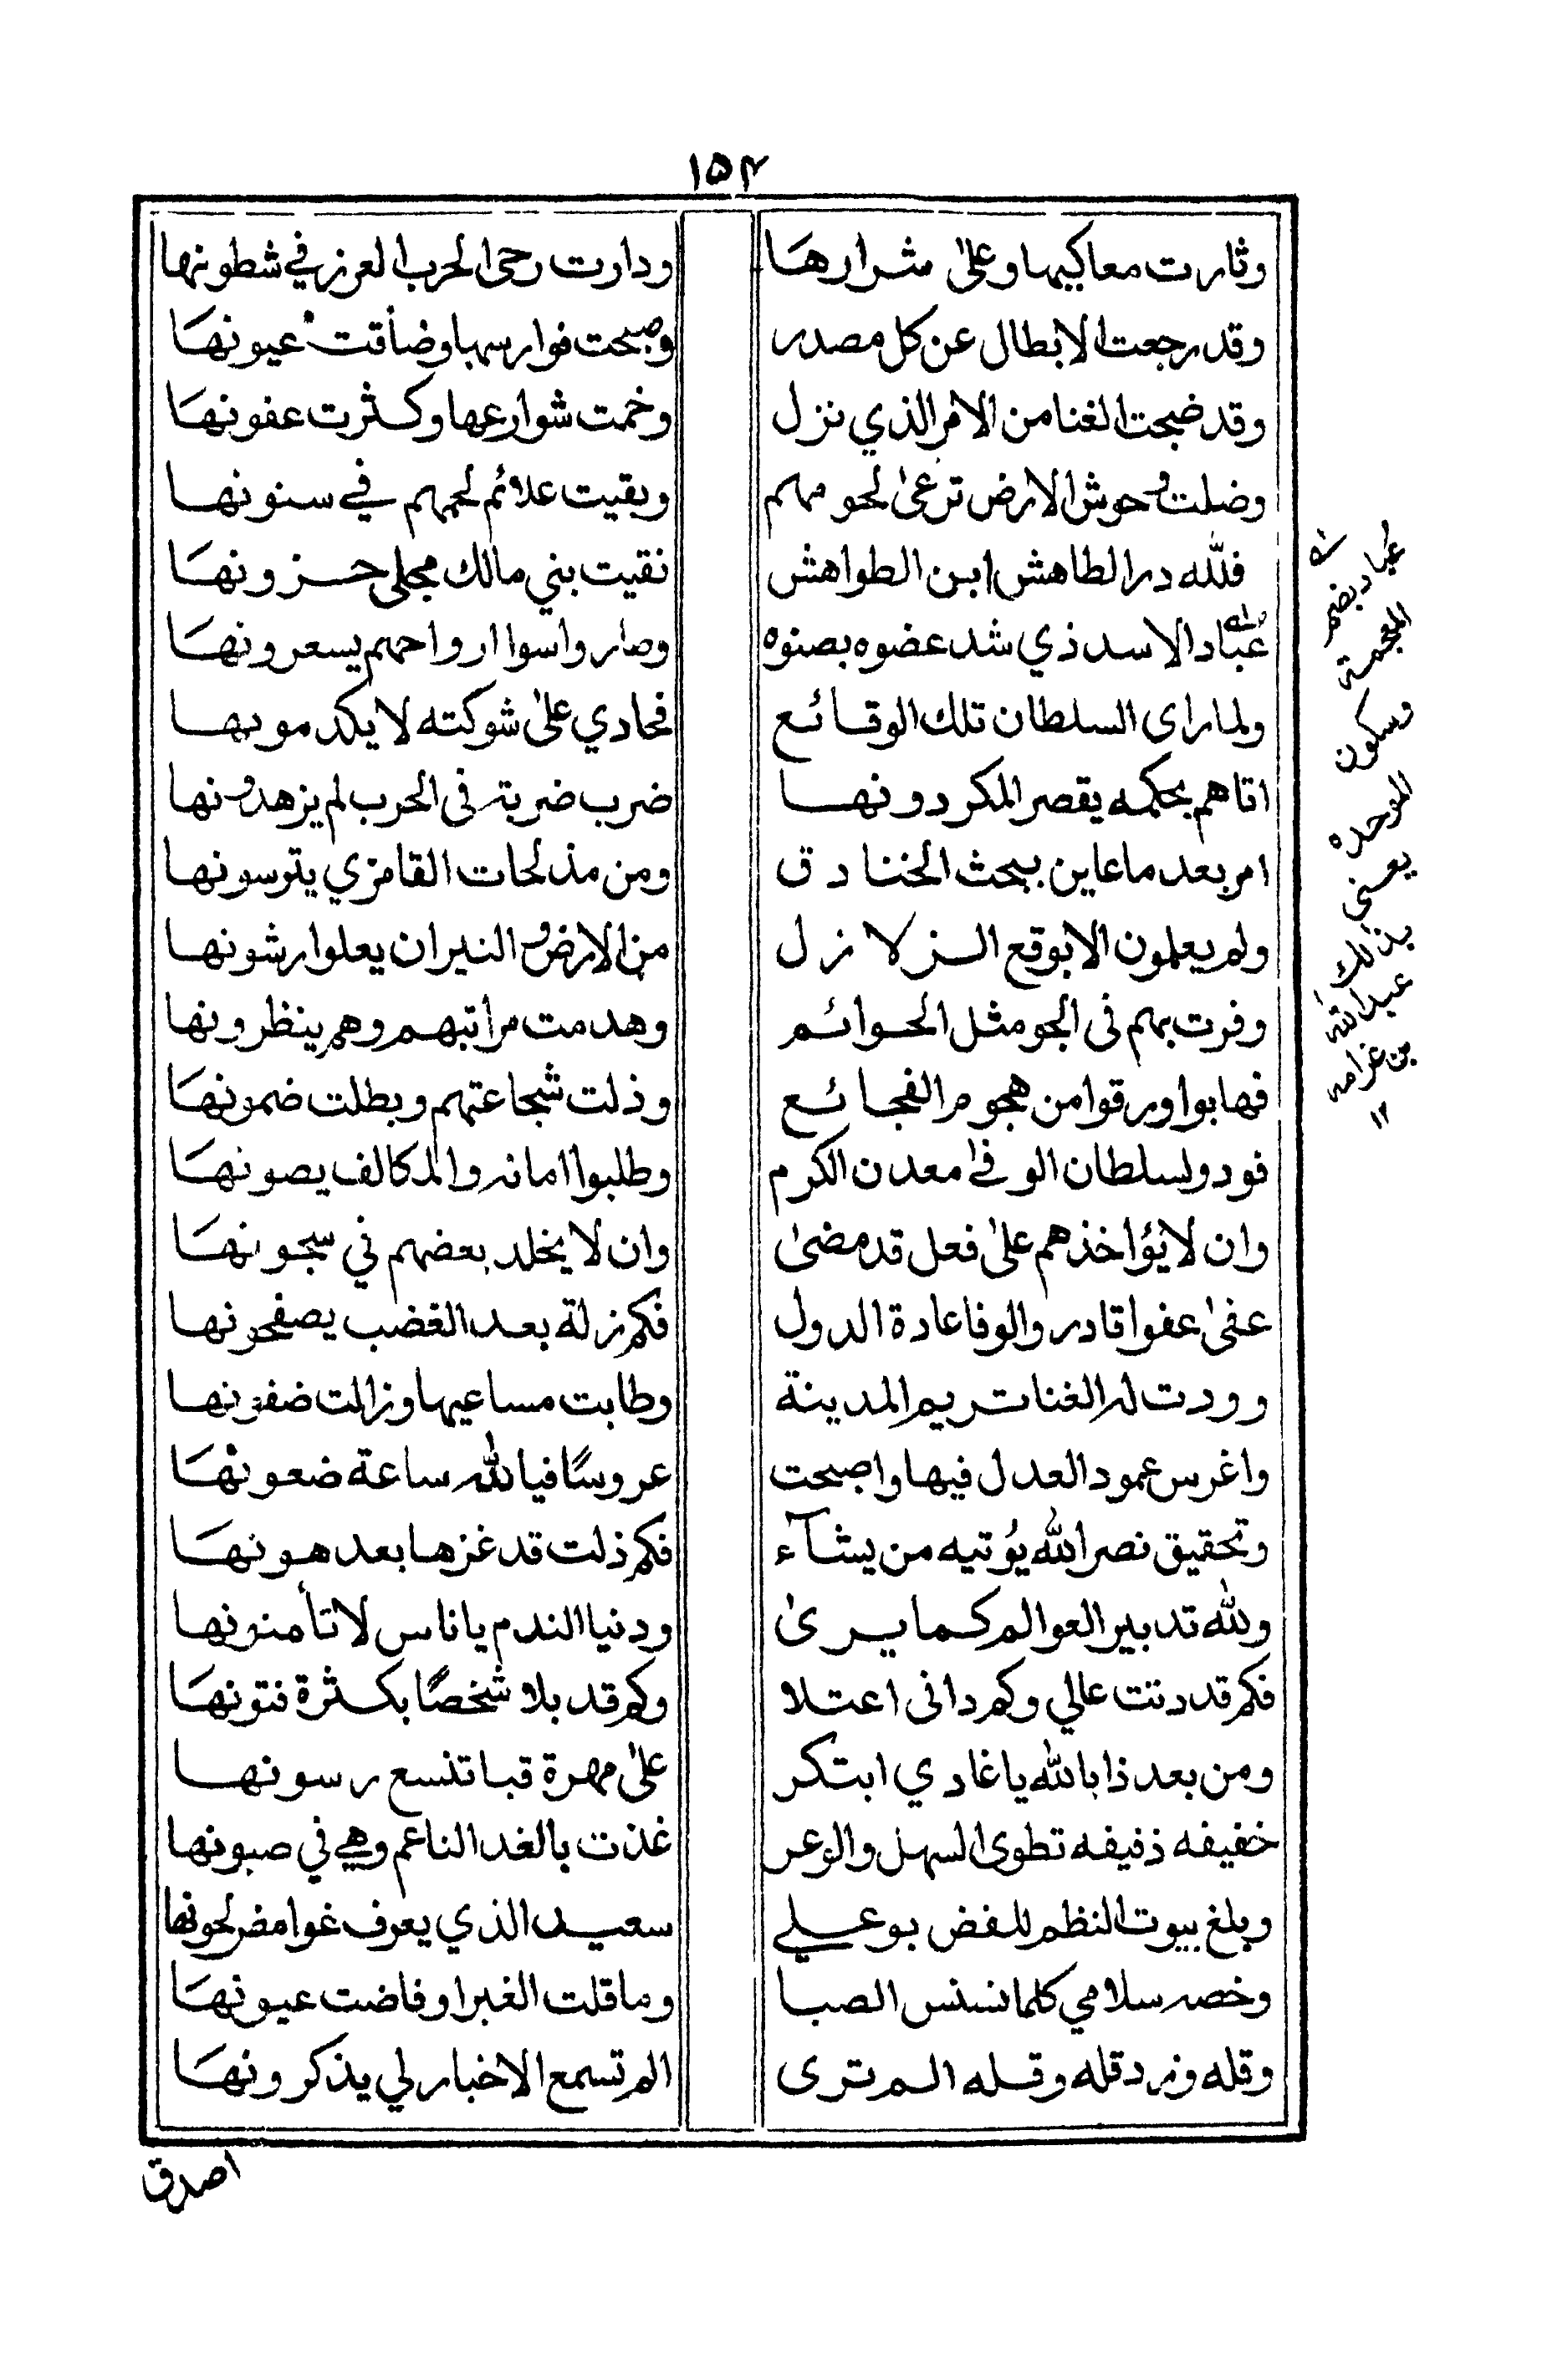 ١٥٤
وثارت معاكيبها وعلىٰ شرارهَا ودارت رحى الحرب العزيز في شطونها
وقد رجعت الابطال عن كل مصدر وصبحت فوارسها وضأقت عيونهَا
وقد ضجت الغنا من الامر الذي نزل وخمت شوارعها وكثرت عفونهَا
وضلت وحوش الارض ترعىٰ لحومهم وبقيت علائم لحمهم في سنونهَا
فلله در الطاهش ابن الطواهش نقيت بني مالك مجلي حزونهَا
غباد الاسد ذي شد عضوه بصنوه وصاروا سوا ارواحهم يسعرونهَا
ولما راى السلطان تلك الوقائع فحادي علىٰ شوكته لا يكد مونها
اتاهم بحكمه يقصر المكر دونها ضرب ضربته في الحرب لم يزهدونها
امر بعد ما عاين ببحث الخنادق ومن مذلحات القامزي يترسونها
ولم يعلمون الا بوقع الزلازل من الارض والنيران يعلوا رشونها
وفرت بهم في الجو مثل الحوائم وهدمت مراتبهم وهم ينظرونها
فهابوا ورقوا من هجوم الفجائع وذلت شجاعتهم وبطلت ضمونهَا
فودو لسلطان الوفيٰ معدن الكرم وطلبوا امانه والمكالف يصونهَا
وان لا يؤاخذهم علىٰ فعل قد مضىٰ وان لا يخلد بعضهم في سجونهَا
عفىٰ عفوا قادر والوفا عادة الدول فكم زلة بعد الغضب يصفحونها
وودت له الغنا تريم المدينة وطابت مساعيها وزالت ضفونها
واغرس عمود العدل فيها واصبحت عروسًا فيا لله ساعة ضعونهَا
وتحقيق نصر الله يُوتيه من يشآء فكم ذلت قد غزها بعد هونهَا
ولله تدبير العوالم كما يرىٰ ودنيا الندم يا ناس لا تأمنونها
فكم قد دنت عالي وكم داني اعتلا وكم قد بلا شخصًا بكثرة فتونهَا
ومن بعد ذا بالله يا غادي ابتكر علىٰ مهرة قبا تنسع رسونها
خفيفه ذفيفه تطوى السهل والوعر غذت بالغد الناعم وهي في صبونها
وبلغ بيوت النظم للفض بوعلي سعيد الذي يعرف غوامض لحونها
وخصه سلامي كلما نسنس الصبا وما قلت الغبرا وفاضت عيونهَا
وقله وزد قله وقله الم ترى الم تسمع الاخبار لي يذكرونهَا
غباد بضم
المعجمة
وسكون
الموحده
يعني
بذلك
عبد الله
بن غرامه
١٢
اصدق